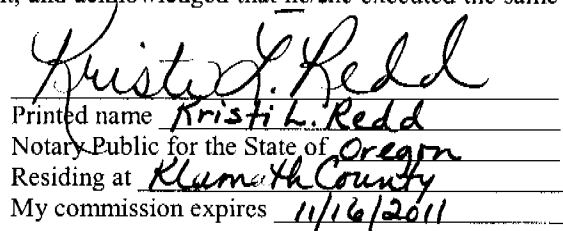 it, and acknowledged that he/she executed the same
Kristi L. Redd
Printed name Kristi L. Redd
Notary Public for the State of Oregon
Residing at Klamath County
My commission expires 11/16/2011